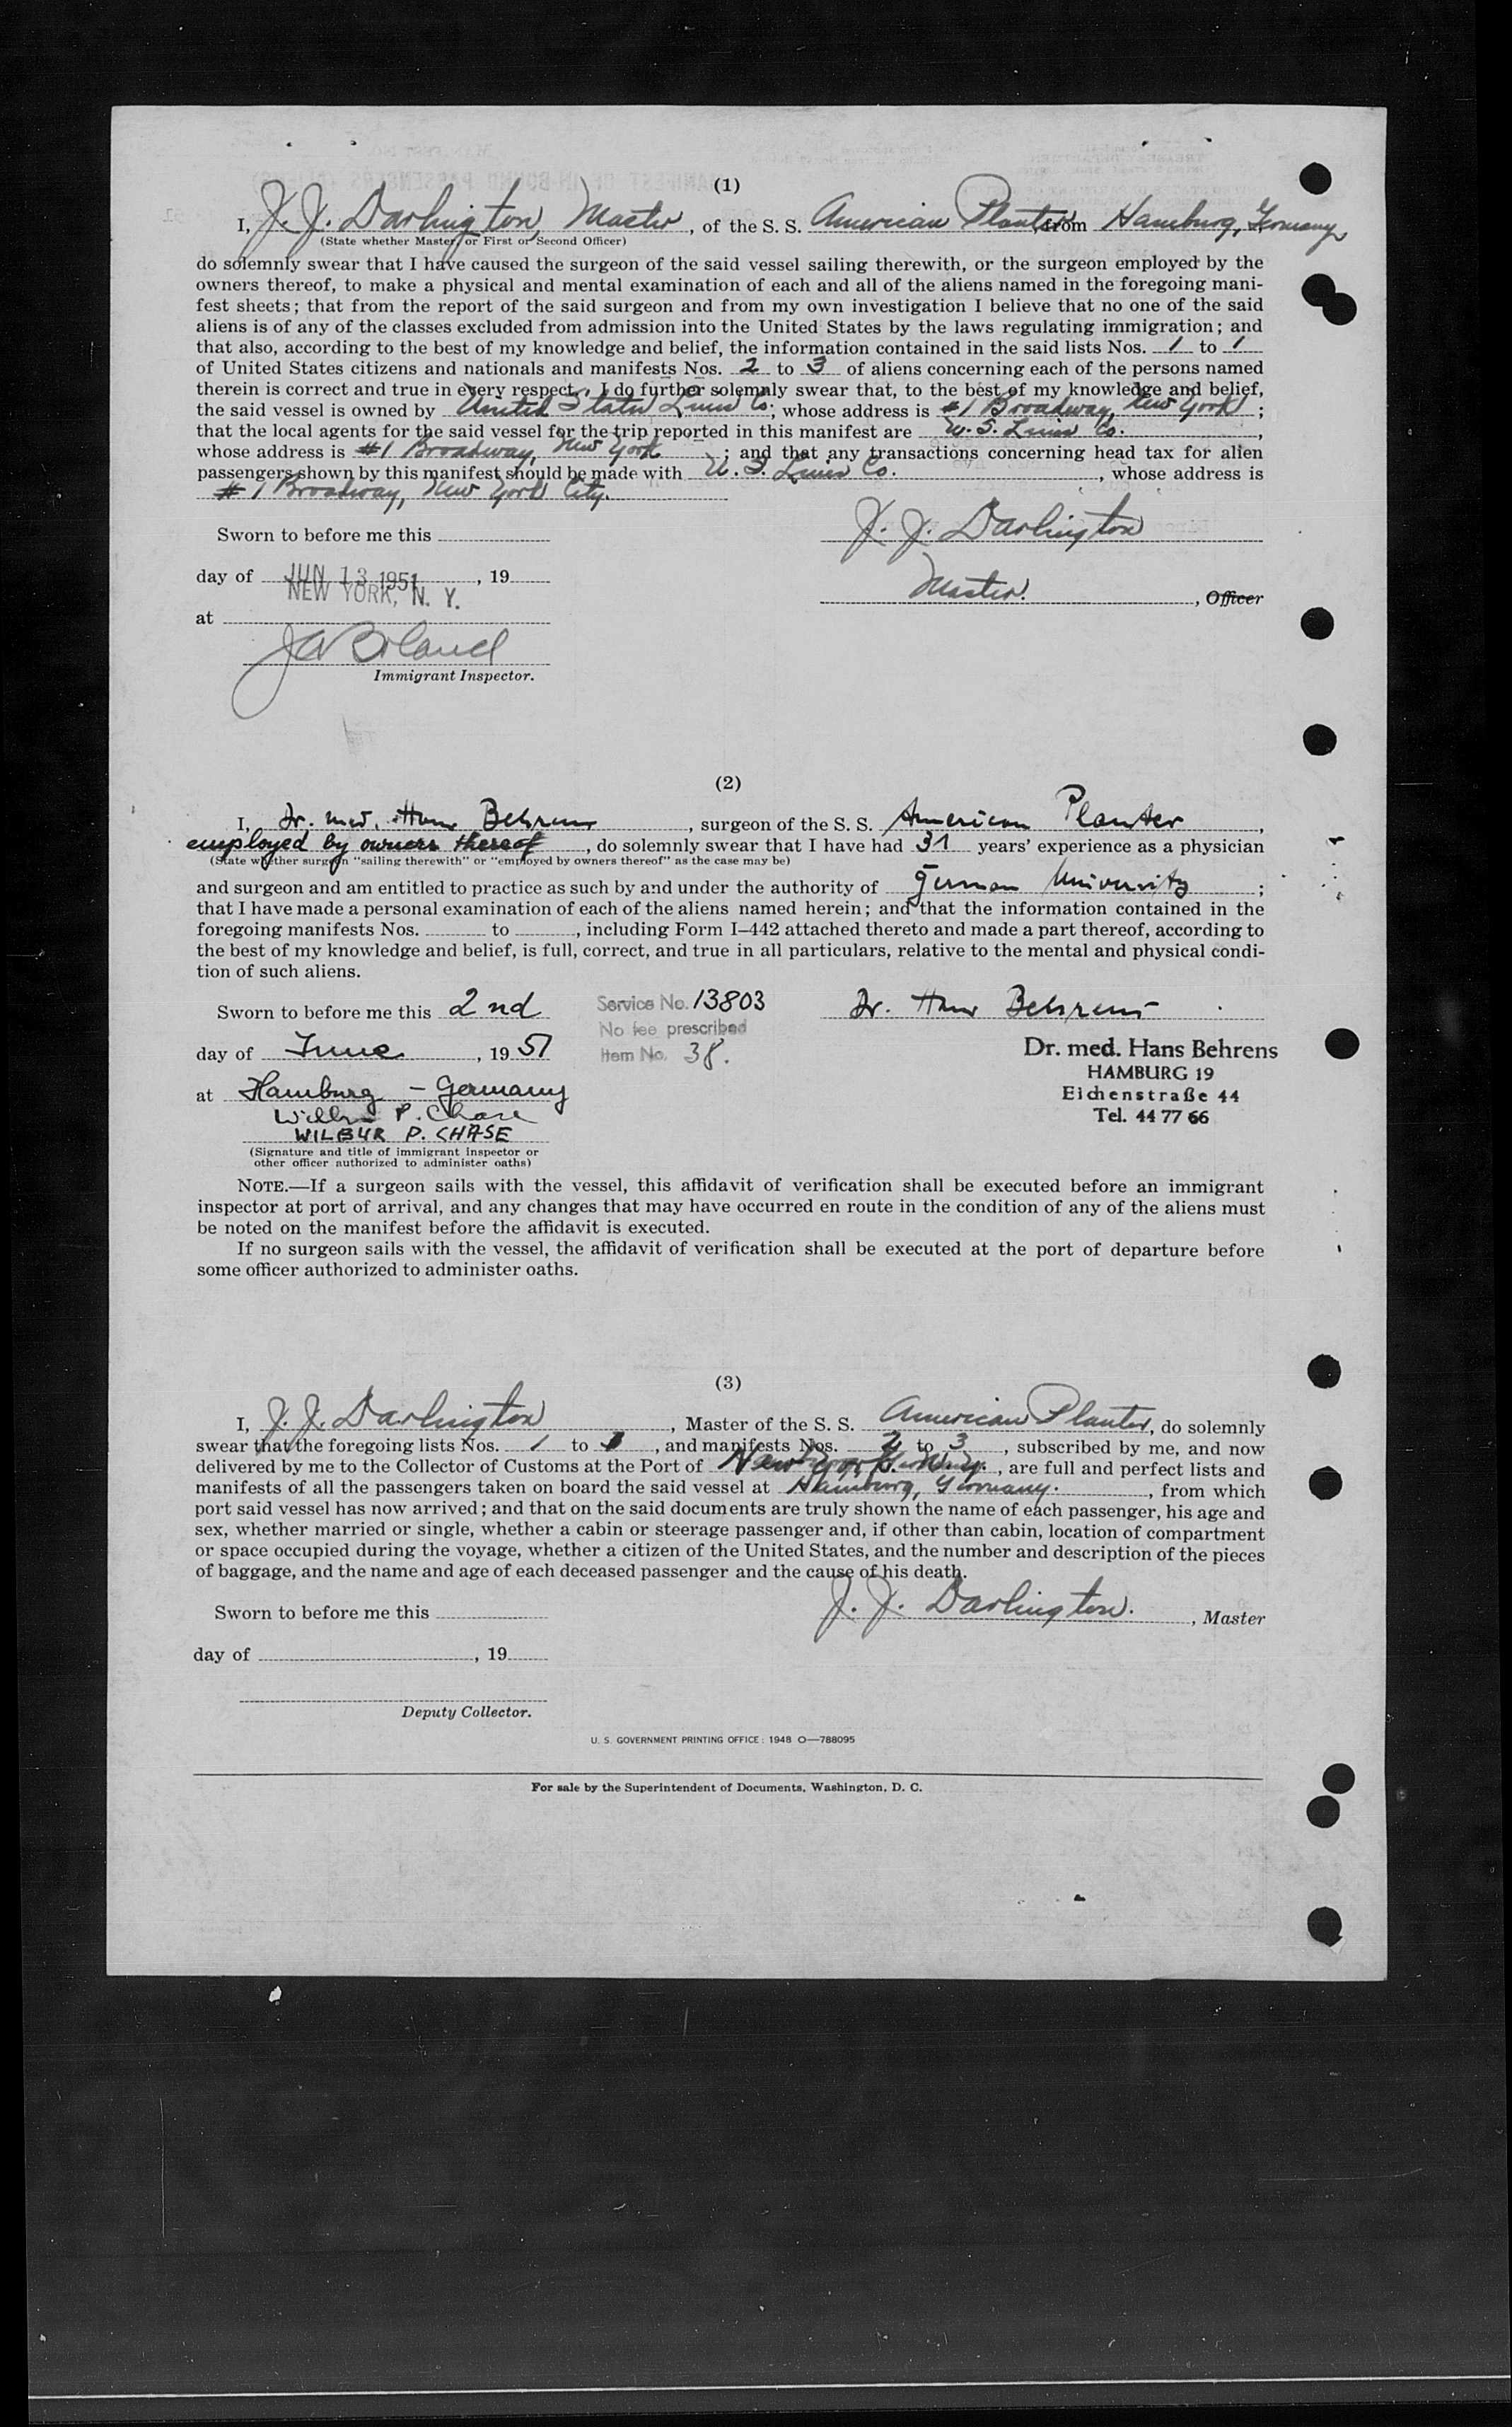 (1)
I, J. J. Darlington, Master, of the S. S. American Planter from Hamburg, Germany
(State whether Master, or First or Second Officer)
do solemnly swear that I have caused the surgeon of the said vessel sailing therewith, or the surgeon employed by the
owners thereof, to make a physical and mental examination of each and all of the aliens named in the foregoing mani-
fest sheets; that from the report of the said surgeon and from my own investigation I believe that no one of the said
aliens is of any of the classes excluded from admission into the United States by the laws regulating immigration; and
that also, according to the best of my knowledge and belief, the information contained in the said lists Nos. 1 to 1
of United States citizens and nationals and manifests Nos. 2 to 3 of aliens concerning each of the persons named
therein is correct and true in every respect. I do further solemnly swear that, to the best of my knowledge and belief,
the said vessel is owned by United States Lines Co; whose address is #1 Broadway, New York;
that the local agents for the said vessel for the trip reported in this manifest are U. S. Lines Co.,
whose address is #1 Broadway, New York; and that any transactions concerning head tax for alien
passengers shown by this manifest should be made with U. S. Lines Co., whose address is
#1 Broadway, New York City.
Sworn to before me this
J. J. Darlington
day of JUN 13 1951, 19
NEW YORK, N. Y.
Master., Officer
at
J A Boland
Immigrant Inspector.
(2)
I, Dr. med. Hans Behrens, surgeon of the S. S. American Planter,
employed by owners thereof, do solemnly swear that I have had 31 years' experience as a physician
(State whether surgeon "sailing therewith" or "employed by owners thereof" as the case may be)
and surgeon and am entitled to practice as such by and under the authority of German University;
that I have made a personal examination of each of the aliens named herein; and that the information contained in the
foregoing manifests Nos. to, including Form I-442 attached thereto and made a part thereof, according to
the best of my knowledge and belief, is full, correct, and true in all particulars, relative to the mental and physical condi-
tion of such aliens.
Sworn to before me this 2nd
Service No. 13803
No fee prescribed
Item No. 38.
Dr. Hans Behrens
day of June, 1951
Dr. med. Hans Behrens
HAMBURG 19
Eichenstraße 44
Tel. 44 77 66
at Hamburg - Germany
Wilbur P. Chase
WILBUR P. CHASE
(Signature and title of immigrant inspector or
other officer authorized to administer oaths)
NOTE.—If a surgeon sails with the vessel, this affidavit of verification shall be executed before an immigrant
inspector at port of arrival, and any changes that may have occurred en route in the condition of any of the aliens must
be noted on the manifest before the affidavit is executed.
If no surgeon sails with the vessel, the affidavit of verification shall be executed at the port of departure before
some officer authorized to administer oaths.
(3)
I, J. J. Darlington, Master of the S. S. American Planter, do solemnly
swear that the foregoing lists Nos. 1 to 1, and manifests Nos. 2 to 3, subscribed by me, and now
delivered by me to the Collector of Customs at the Port of New York, are full and perfect lists and
manifests of all the passengers taken on board the said vessel at Hamburg, Germany., from which
port said vessel has now arrived; and that on the said documents are truly shown the name of each passenger, his age and
sex, whether married or single, whether a cabin or steerage passenger and, if other than cabin, location of compartment
or space occupied during the voyage, whether a citizen of the United States, and the number and description of the pieces
of baggage, and the name and age of each deceased passenger and the cause of his death.
J. J. Darlington., Master
Sworn to before me this
day of, 19
Deputy Collector.
U. S. GOVERNMENT PRINTING OFFICE: 1948 O—788095
For sale by the Superintendent of Documents, Washington, D. C.